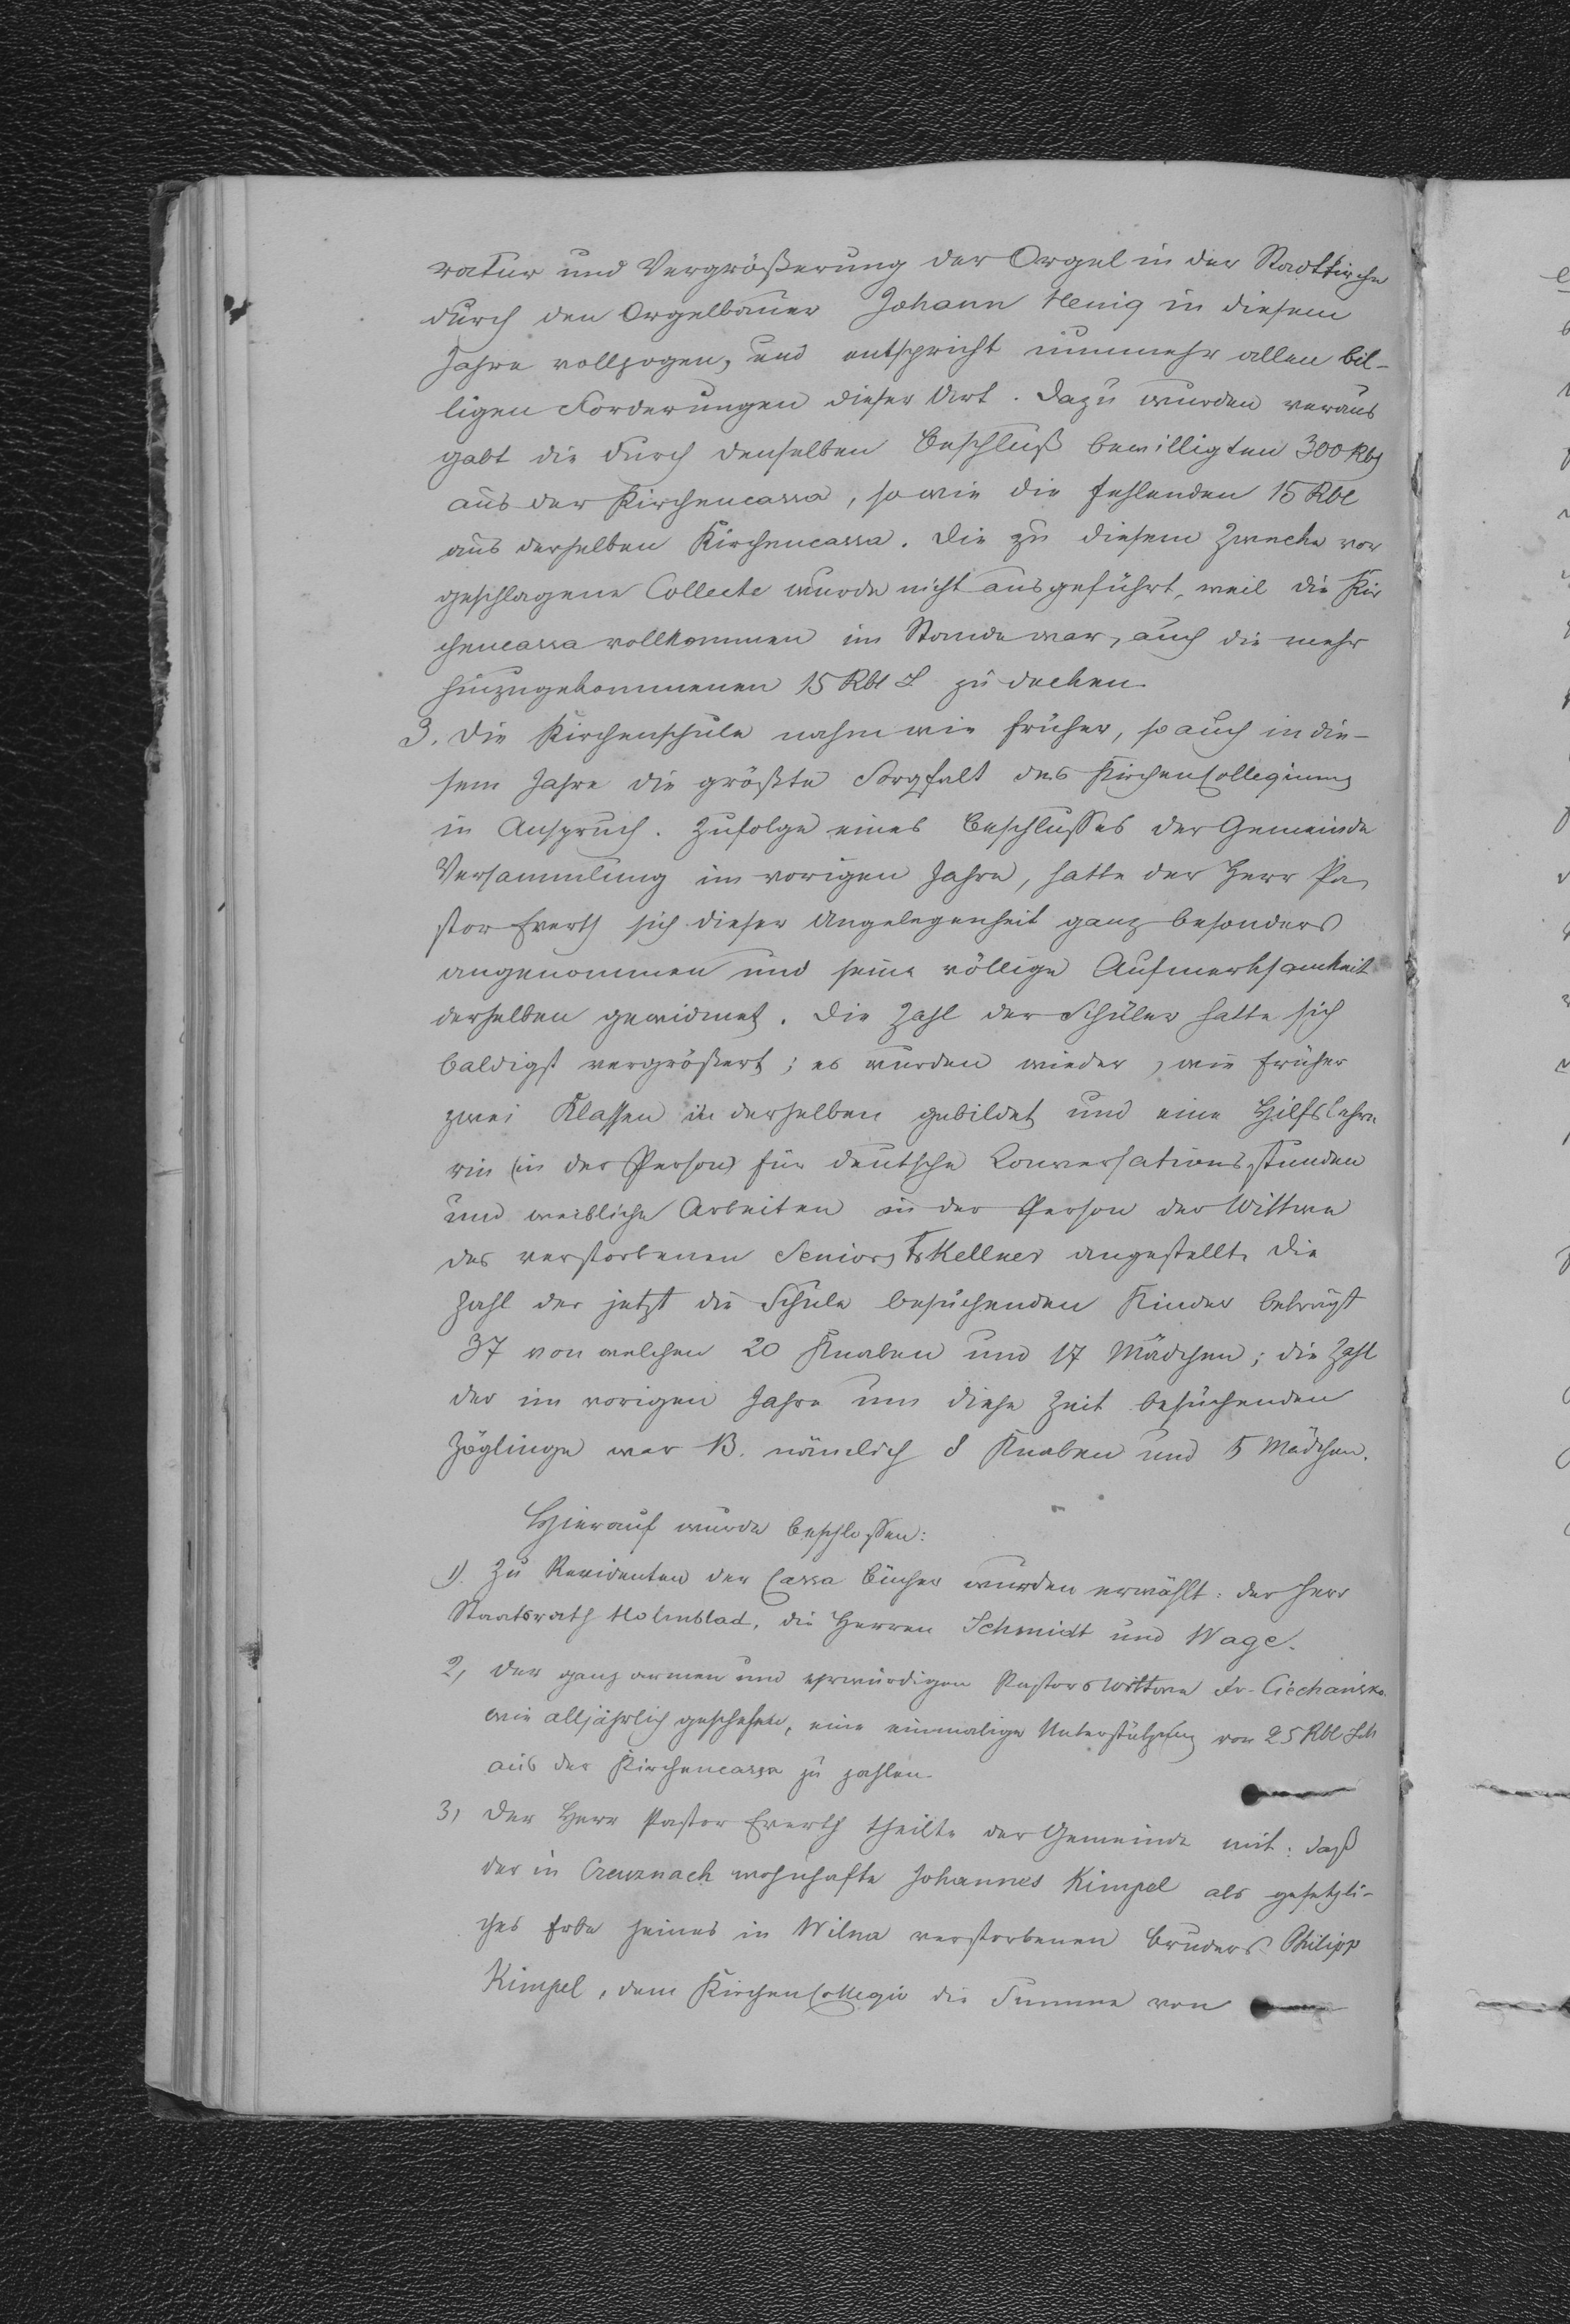 ratur und Vergrößerung der Orgel in der Stadtkirche
durch den Orgelbauer Johann Henig in diesem
Jahre vollzogen, und entspricht nunmehr allen bil-
ligen Forderungen dieser Art. Dazu wurden veraus
gabt die durch denselben Beschluß bewilligten 300 Rbl
aus der Kirchencassa, sowie die fehlenden 15 Rbl
aus derselben Kirchencassa. Die zu diesem Zwecke vor
geschlagene Collecte wurde nicht ausgeführt, weil die Kir
chencassa vollkommen im Stande war, auch die mehr
hinzugekommenen 15 Rbl S zu decken.
3. Die Kirchenschule nahm wie früher, so auch in die-
sem Jahre die größte Sorgfalt des Kirchencollegiums
in Anspruch. Zufolge eines Beschlusses der Gemeinde
Versammlung im vorigen Jahre, hatte der Herr Pa
stor Everth sich dieser Angelegenheit ganz besonders
angenommen und seine völlige Aufmerksamkeit
derselben gewidmet. Die Zahl der Schüler hatte sich
baldigst vergrößert; es wurden wieder, wie früher
zwei Klassen in derselben gebildet und eine Hilfslehre
rin (in der Person) für deutsche Conversationsstunden
und weibliche Arbeiten in der Person der Wittwe
des verstorbenen Seniors Kellner angestellt. Die
Zahl der jetzt die Schule besuchenden Kinder beträgt
37 von welchen 20 Knaben und 17 Mädchen; die Zahl
der im vorigen Jahre um diese Zeit besuchenden
Zöglinge war 13. nämlich 8 Knaben und 5 Mädchen.
Hierauf wurde beschlossen:
1). Zu Revidenten der Cassa Bücher wurden erwählt: der Herr
Staatsrath Holmblad, die Herren Schmidt und Wage.
2, Der ganz armen und ehrwürdigen Pastors Wittwe Fr. Ciechańska
wie alljährlich geschehen, eine einmalige Unterstützung von 25 Rbl Slb
aus der Kirchencassa zu zahlen.
3, Der Herr Pastor Everth theilte der Gemeinde mit: daß
der in Creuznach wohnhafte Johannes Kimpel als gesetzli-
ches Erbe seines in Wilna verstorbenen Bruders Philipp
Kimpel, dem Kirchencollegio die Summe von